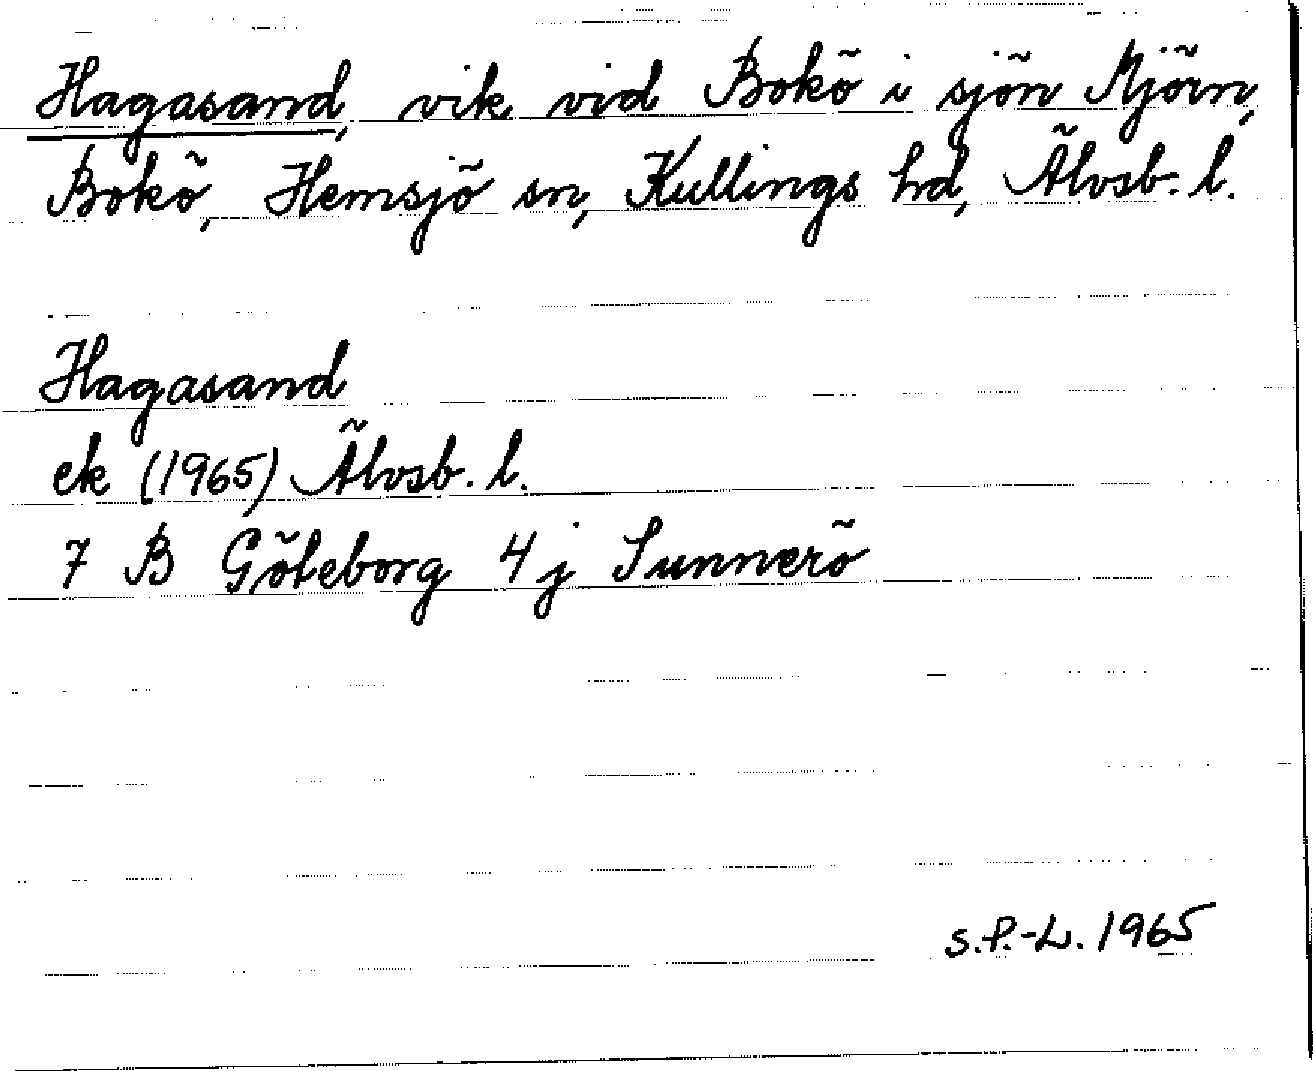 Hagasand, vik vid Bokö i sjön Mjörn,
Bokö, Hemsjö sn, Kullings hd, Älvsb. l.
Hagasand
ek (1965) Älvsb. l.
7 B Göteborg 4 j Sunnerö
S.P.-L. 1965